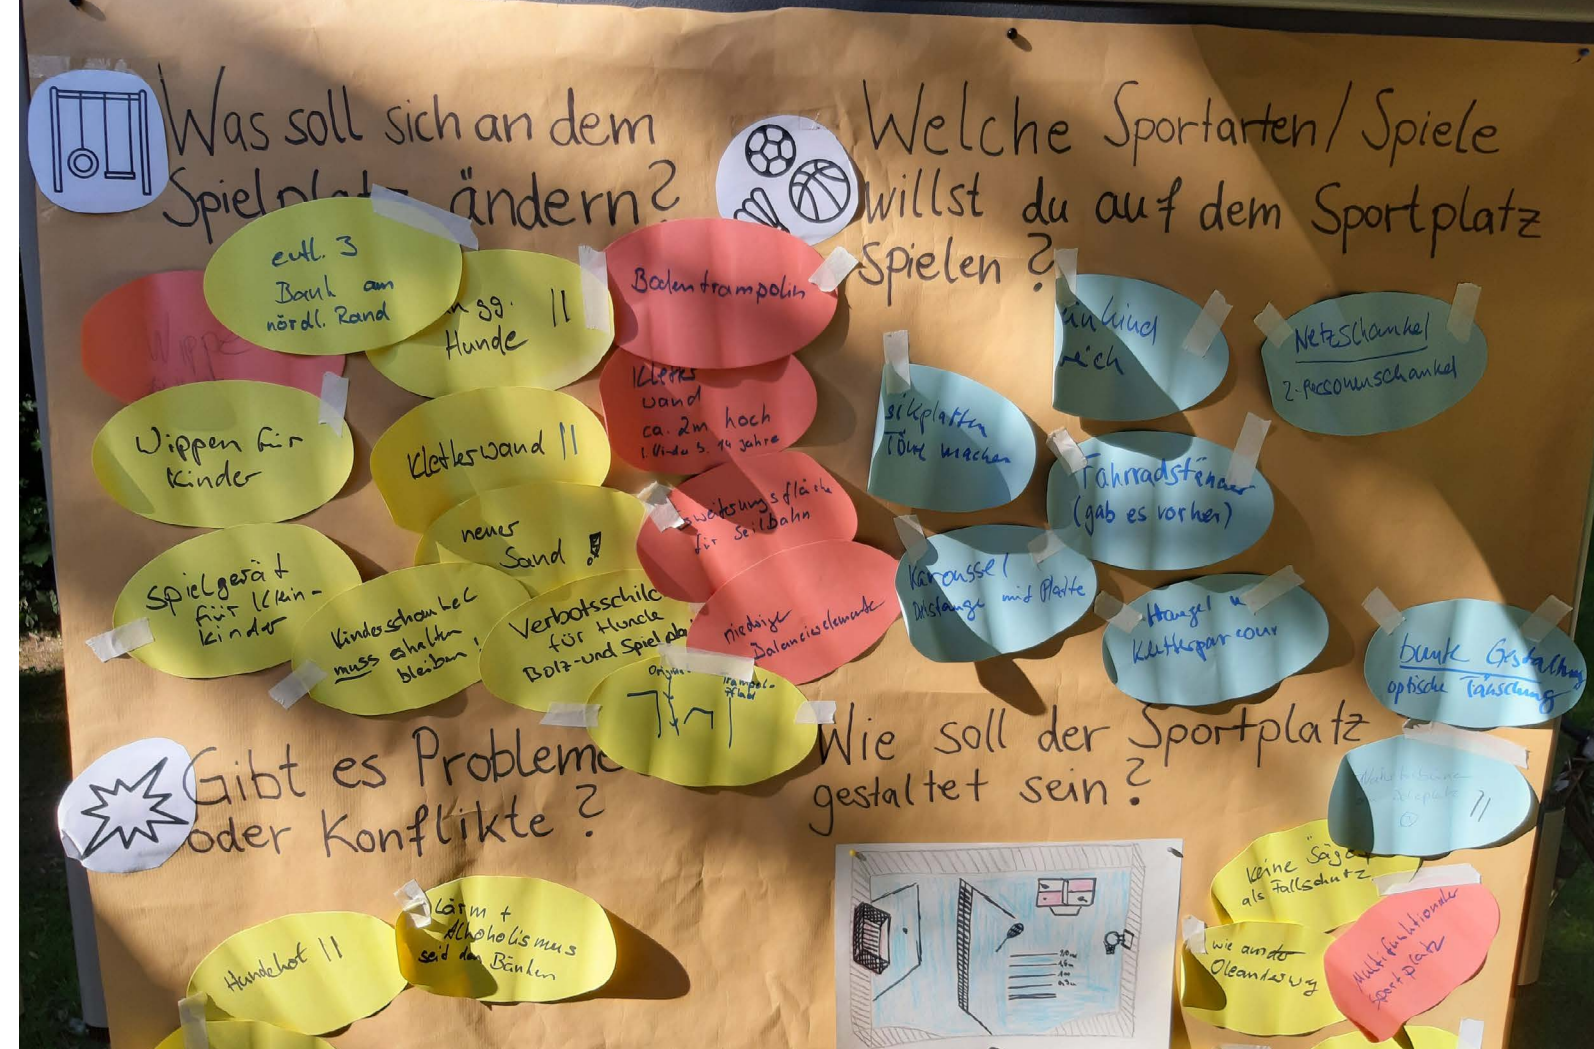 Was soll sich an dem
Spielplatz ändern?
evtl. 3
Bank am
nördl. Rand
gg. ||
Hunde
Wippe
Wippen für
Kinder
Kletterwand ||
neuer
Sand !
Spielgerät
für Klein-
kinder
Kinderschaukel
muss erhalten
bleiben!
Verbotsschild
für Hunde
Bolz- und
Bodentrampolin
Kletter
wand
ca. 2m hoch
14 Jahre
für Seilbahn
niedrige
Balancierelemente
Welche Sportarten/Spiele
willst du auf dem Sportplatz
spielen?
Netzschaukel
2-Personenschaukel
machen
Fahrradständer
(gab es vorher)
Karoussel
mit Platte
Hangel u
Kletterparcour
bunte Gestaltung
optische Täuschung
Gibt es Probleme
oder Konflikte?
Hundekot ||
Lärm +
Alkoholismus
seid den Bänken
Wie soll der Sportplatz
gestaltet sein?
||
keine
als Fallschutz
wie
Oleanderweg
Multifunktionaler
Sportplatz